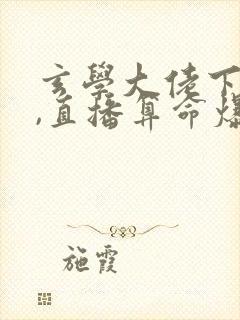 玄學大佬下
,直播算命爆
施霞